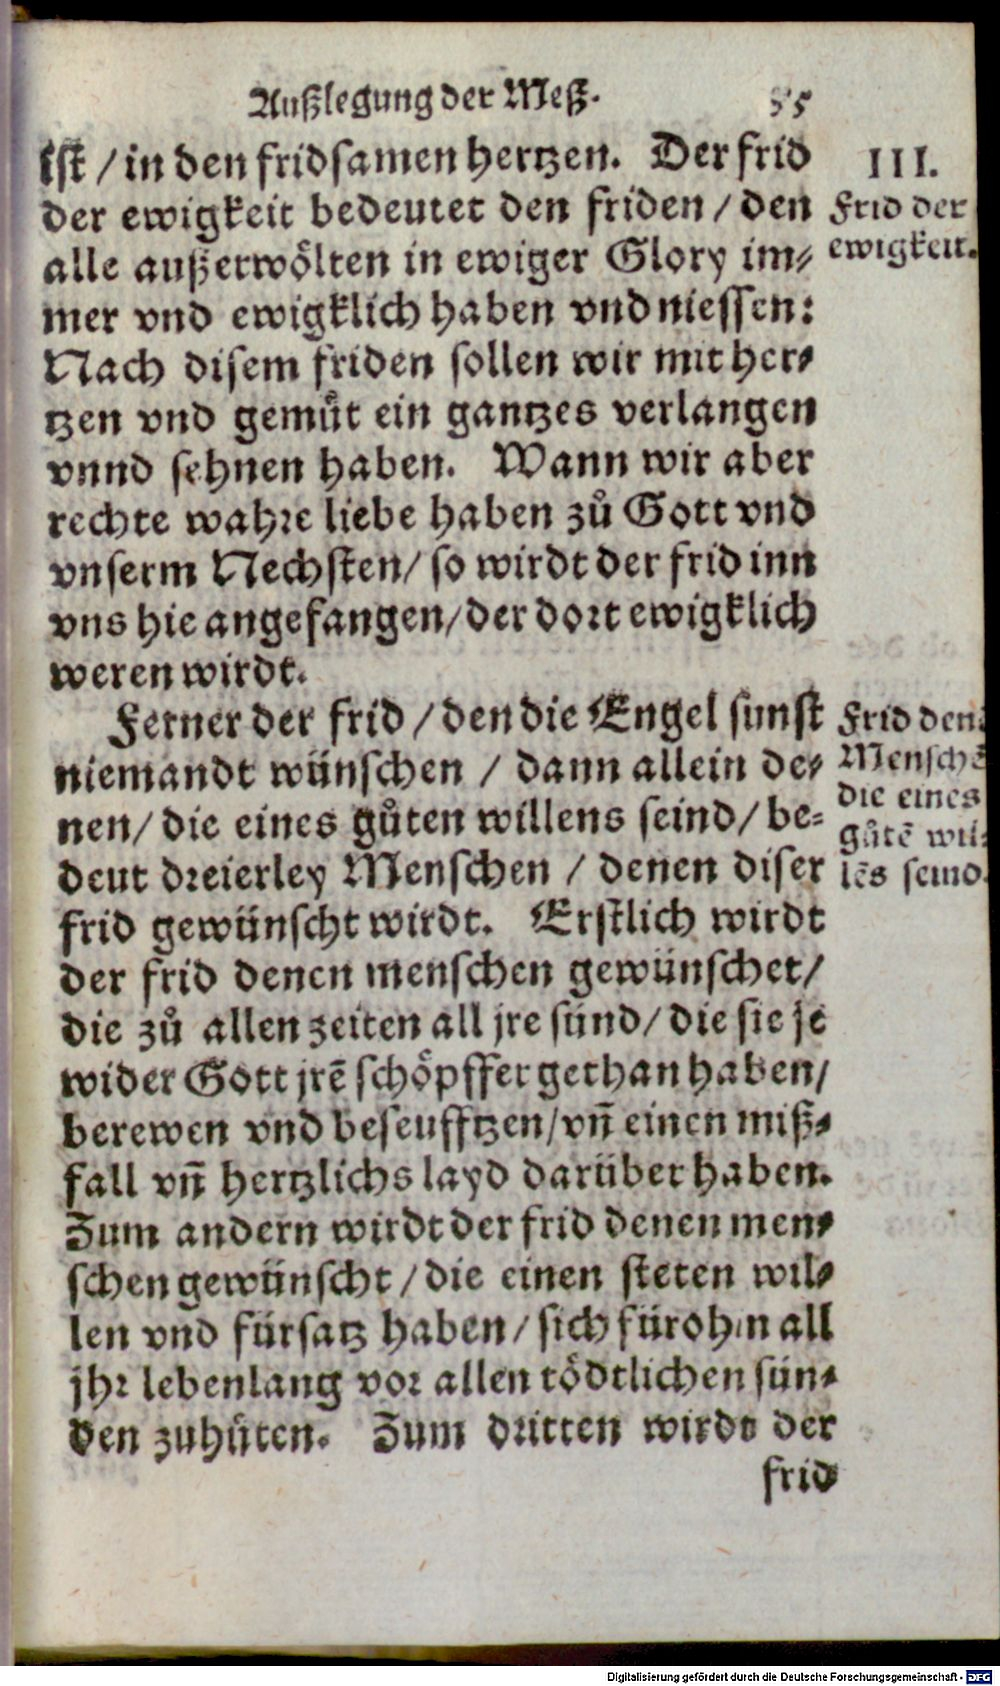 Außlegung der Meß. 55
ist / in den fridsamen hertzen. Der frid
der ewigkeit bedeutet den friden / den
alle außerwoͤlten in ewiger Glory im-
mer vnd ewigklich haben vnd niessen:
Nach disem friden sollen wir mit her-
tzen vnd gemuͤt ein gantzes verlangen
vnnd sehnen haben. Wann wir aber
rechte wahre liebe haben zů Gott vnd
vnserm Nechsten / so wirdt der frid inn
vns hie angefangen / der dort ewigklich
weren wirdt.
III.
Frid der
ewigkeit.
Ferner der frid / den die Engel sunst
niemandt wünschen / dann allein de-
nen / die eines gůten willens seind / be-
deut dreierley Menschen / denen diser
frid gewünscht wirdt. Erstlich wirdt
der frid denen menschen gewünschet /
die zů allen zeiten all jre sünd / die sie je
wider Gott jrē schoͤpffer gethan haben /
berewen vnd beseufftzen / vñ einen miß-
fall vñ hertzlichs layd darüber haben.
Zum andern wirdt der frid denen men-
schen gewünscht / die einen steten wil-
len vnd fürsatz haben / sich fürohin all
jhr lebenlang vor allen toͤdtlichen sün-
den zuhüten. Zum dritten wirdt der
frid
Frid den
Menschē
die eines
gůtē wil-
lēs seind.
Digitalisierung gefördert durch die Deutsche Forschungsgemeinschaft - DFG